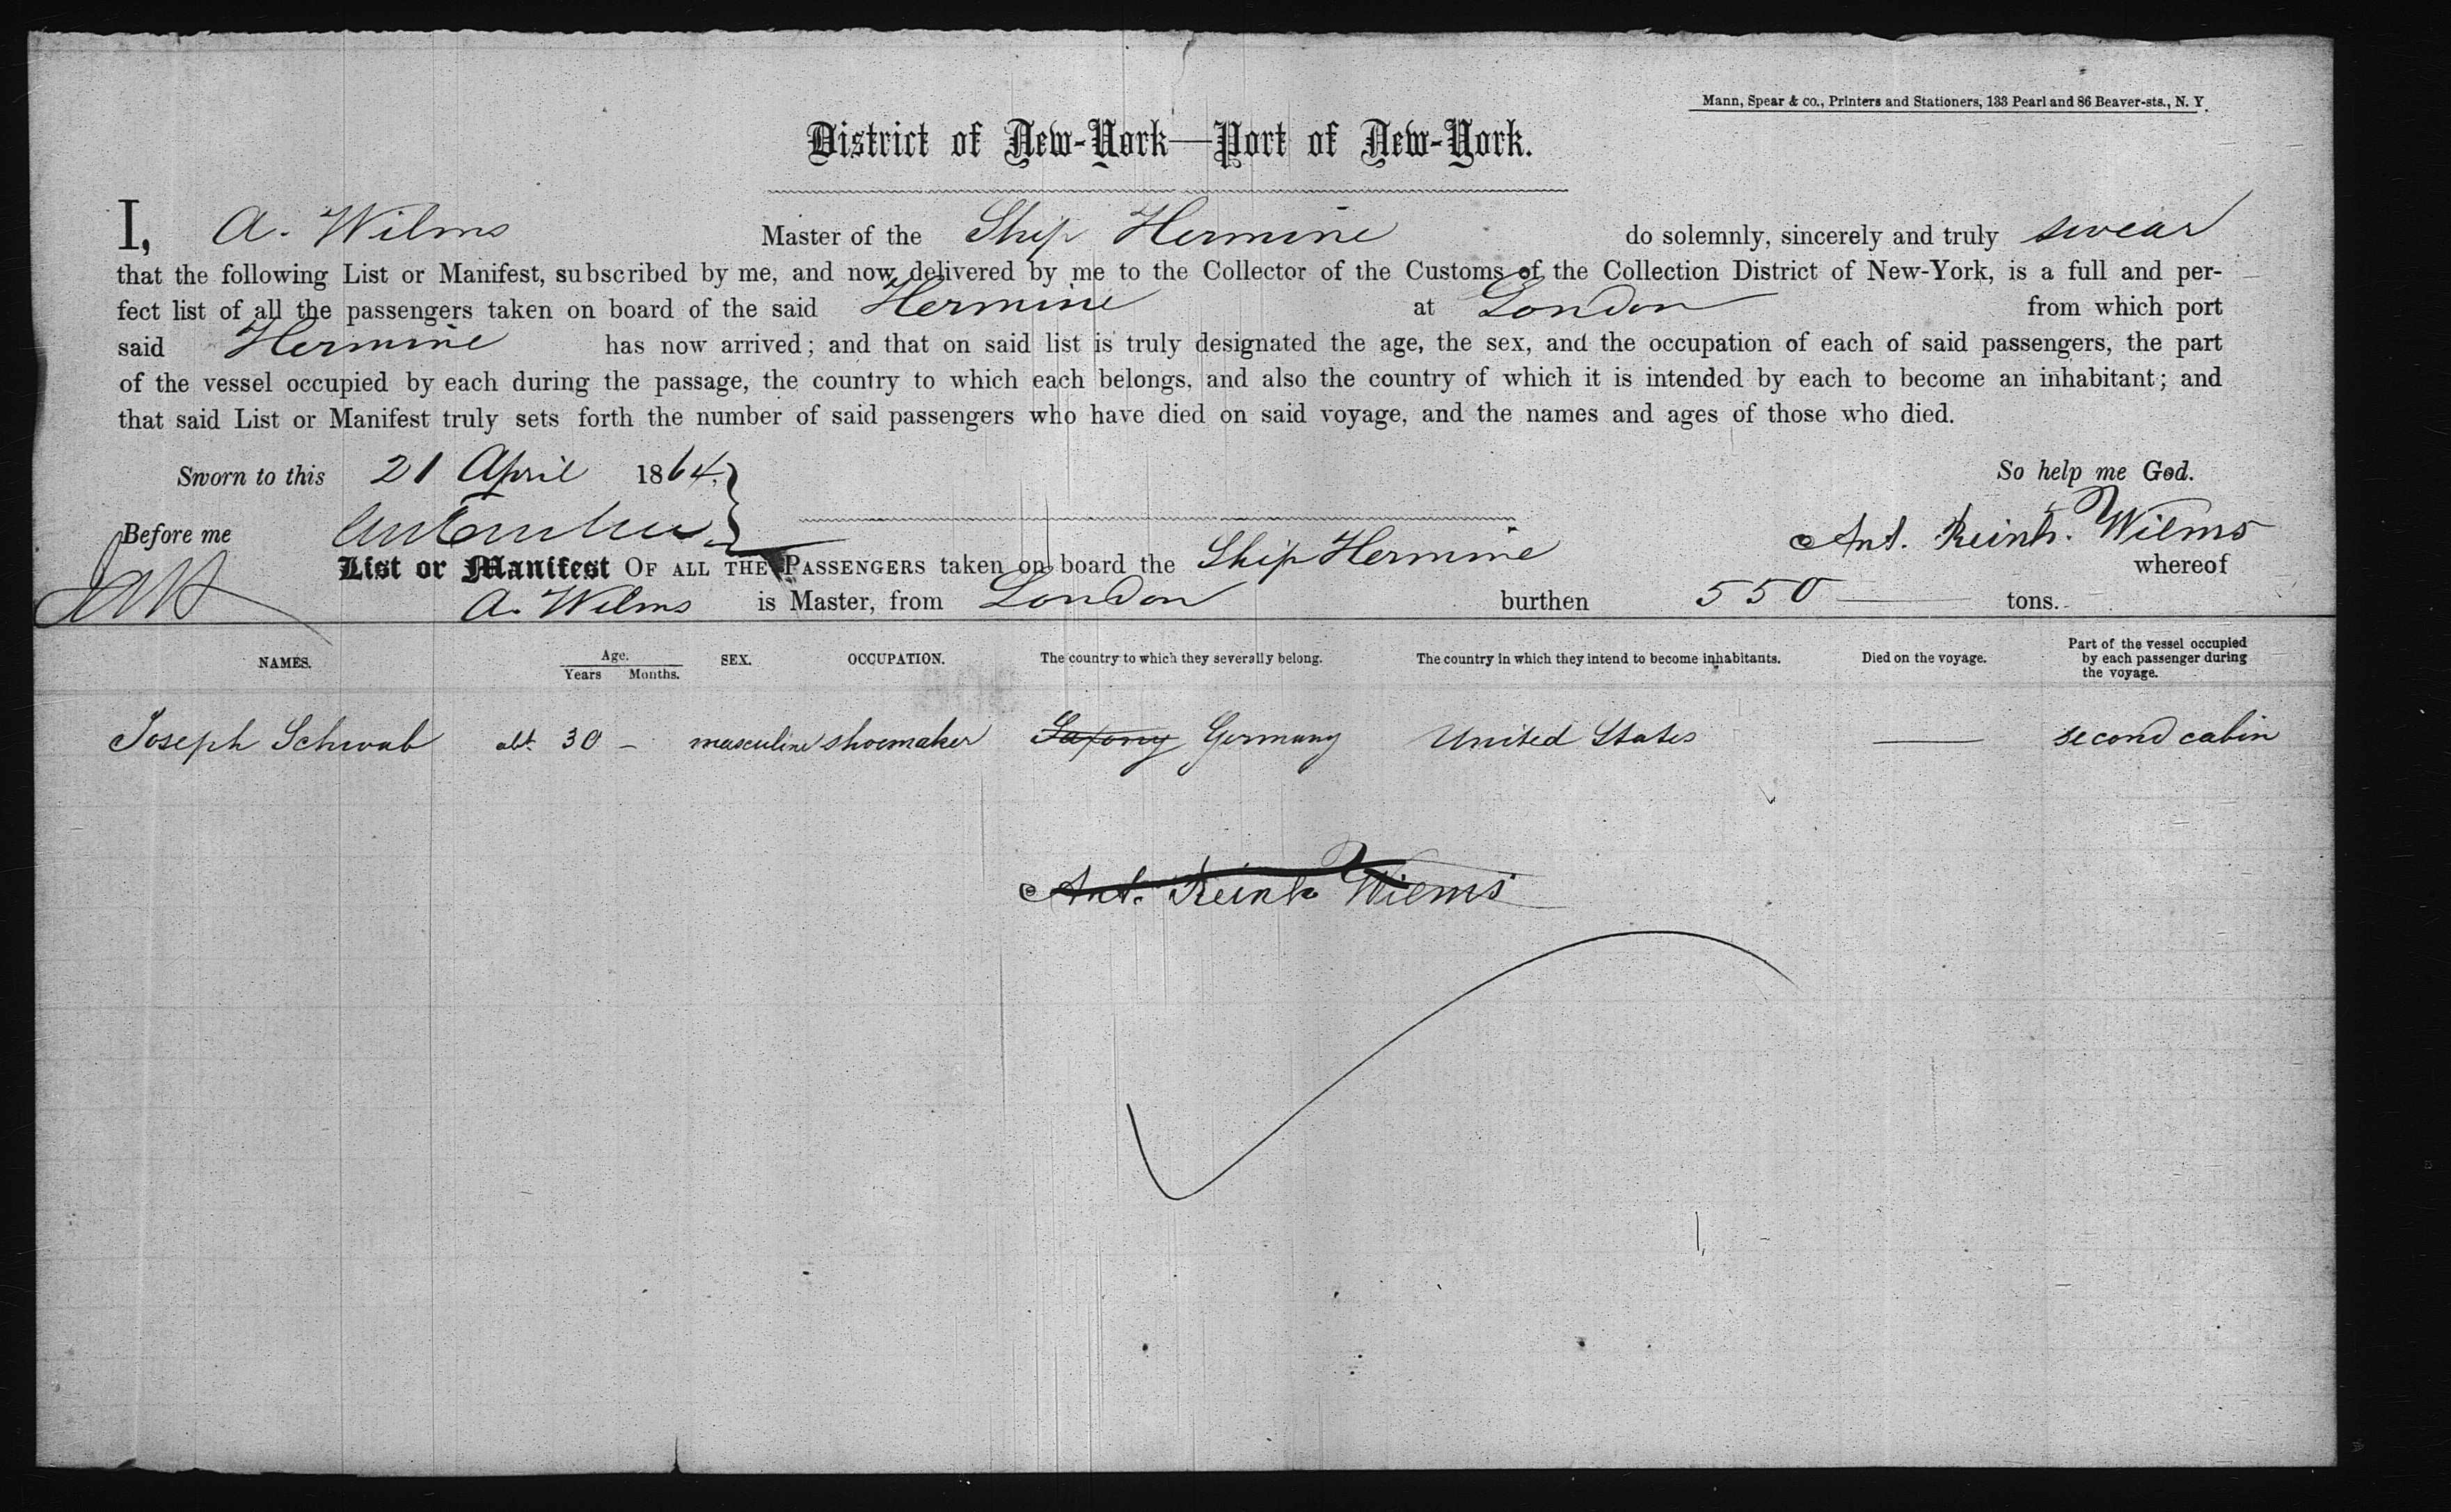 Mann, Spear & co., Printers and Stationers, 133 Pearl and 86 Beaver-sts., N. Y.
District of New-York—Port of New-York.
I, A. Wilms Master of the Ship Hermine do solemnly, sincerely and truly swear
that the following List or Manifest, subscribed by me, and now delivered by me to the Collector of the Customs of the Collection District of New-York, is a full and per-
fect list of all the passengers taken on board of the said Hermine at London from which port
said Hermine has now arrived; and that on said list is truly designated the age, the sex, and the occupation of each of said passengers, the part
of the vessel occupied by each during the passage, the country to which each belongs, and also the country of which it is intended by each to become an inhabitant; and
that said List or Manifest truly sets forth the number of said passengers who have died on said voyage, and the names and ages of those who died.
Sworn to this 21 April 1864. So help me God.
Before me Ant. Reinh. Wilms
List or Manifest OF ALL THE PASSENGERS taken on board the Ship Hermine whereof
A. Wilms is Master, from London burthen 550 tons.
NAMES. Age. Years Months. SEX. OCCUPATION. The country to which they severally belong. The country in which they intend to become inhabitants. Died on the voyage. Part of the vessel occupied by each passenger during the voyage.
Joseph Schwab abt. 30 – masculine shoemaker Saxony Germany United States — second cabin
Ant. Reinh Wilms